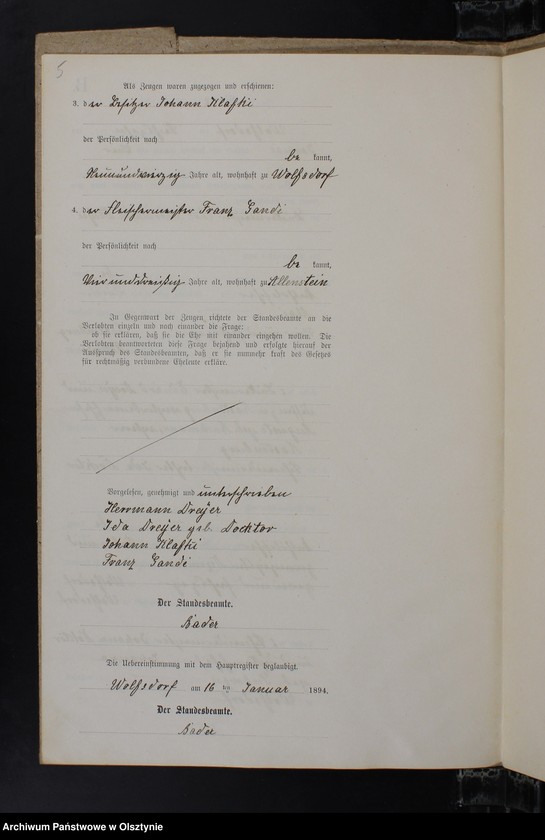 5
Als Zeugen waren zugezogen und erschienen:
3. der Besitzer Johann Klafki
der Persönlichkeit nach
be kannt,
Neunundvierzig Jahre alt, wohnhaft zu Wolfsdorf
4. der Fleischermeister Franz Gandi
der Persönlichkeit nach
be kannt,
Vierunddreißig Jahre alt, wohnhaft zu Allenstein
In Gegenwart der Zeugen richtete der Standesbeamte an die
Verlobten einzeln und nach einander die Frage:
ob sie erklären, daß sie die Ehe mit einander eingehen wollen. Die
Verlobten beantworteten diese Frage bejahend und erfolgte hierauf der
Ausspruch des Standesbeamten, daß er sie nunmehr kraft des Gesetzes
für rechtmäßig verbundene Eheleute erkläre.
Vorgelesen, genehmigt und unterschrieben
Herrmann Dreyer
Ida Dreyer geb. Docktor
Johann Klafki
Franz Gandi
Der Standesbeamte.
Bader
Die Uebereinstimmung mit dem Hauptregister beglaubigt.
Wolfsdorf am 16 ten Januar 1894.
Der Standesbeamte.
Bader
Archiwum Państwowe w Olsztynie